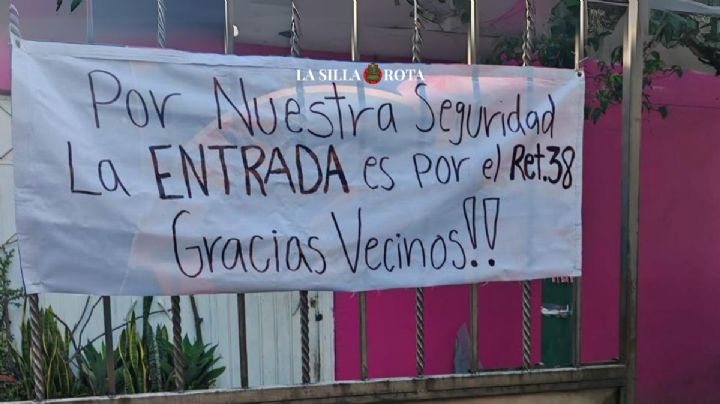 LA SILLA ROTA
Por Nuestra Seguridad
La ENTRADA es por el Ret.38
Gracias Vecinos!!